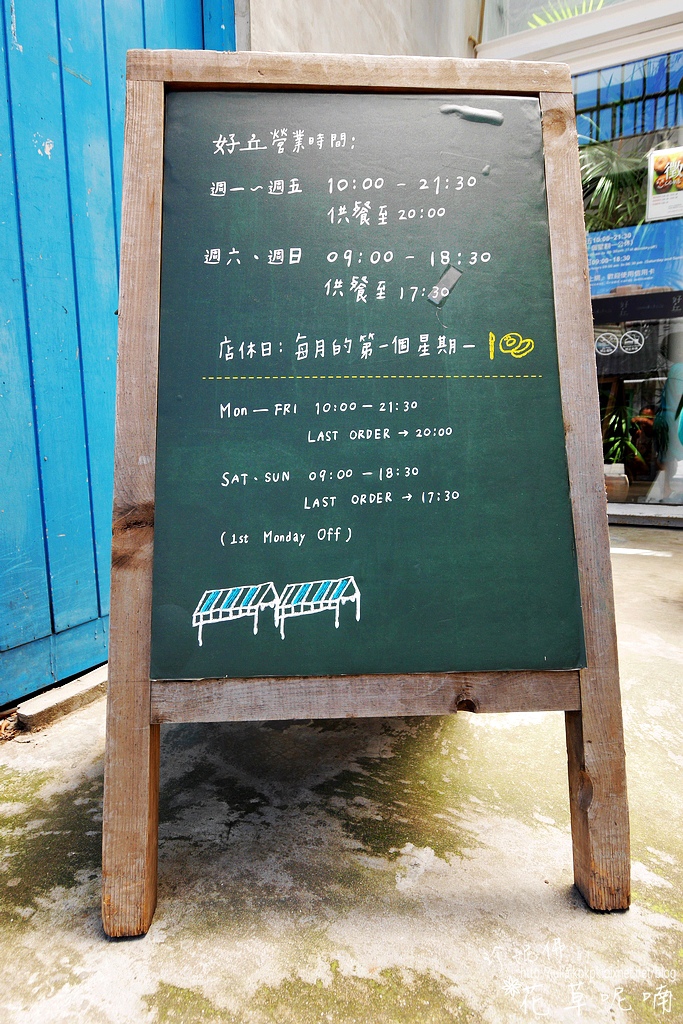 好丘營業時間:
週一~週五 10:00 - 21:30
供餐至 20:00
週六、週日 09:00 - 18:30
供餐至 17:30
店休日: 每月的第一個星期一
Mon — FRI 10:00 — 21:30
LAST ORDER → 20:00
SAT、SUN 09:00 — 18:30
LAST ORDER → 17:30
(1st Monday Off)
花草呢喃